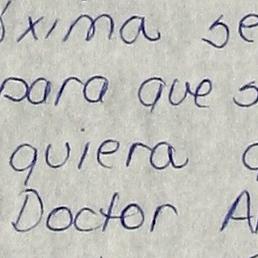 xima se
para que s
quiera
Doctor A